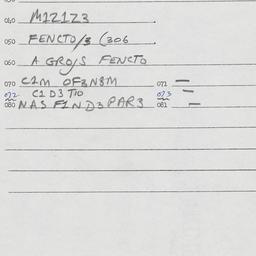 040 M1Z1Z3 .
050 FENCTO/3 (306
060 A GRO/S FENCTO
070 C1M OF3N8M 071 —
072 C1 D3 TIO 073 —
080 NAS F1ND3 PAR3 081 —